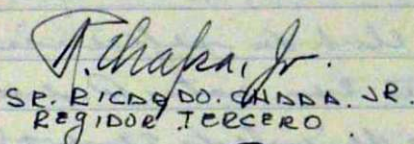 R. Chapa, Jr.
SR. RICARDO. CHAPA. JR.
REGIDOR TERCERO.